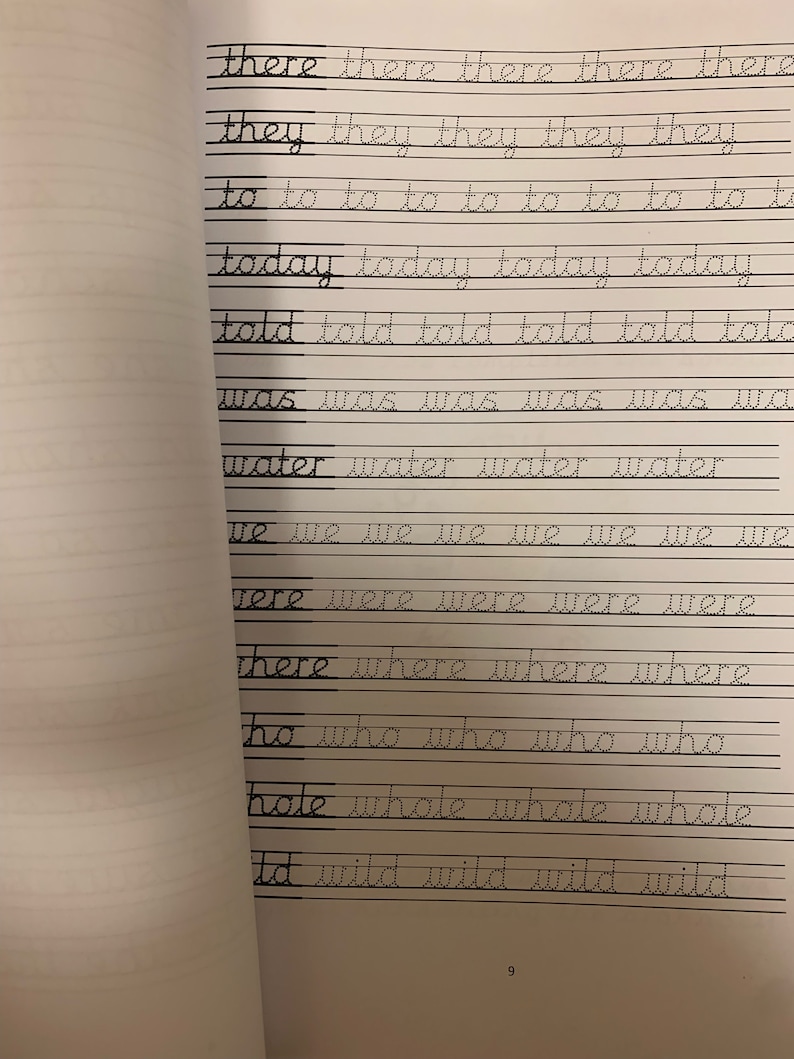 there there there there there
they they they they they
to to to to to to to to to to
today today today today
told told told told told told
was was was was was wa
water water water water
we we we we we we we we
were were were were were
where where where where
who who who who who
whole whole whole whole
wild wild wild wild wild
9